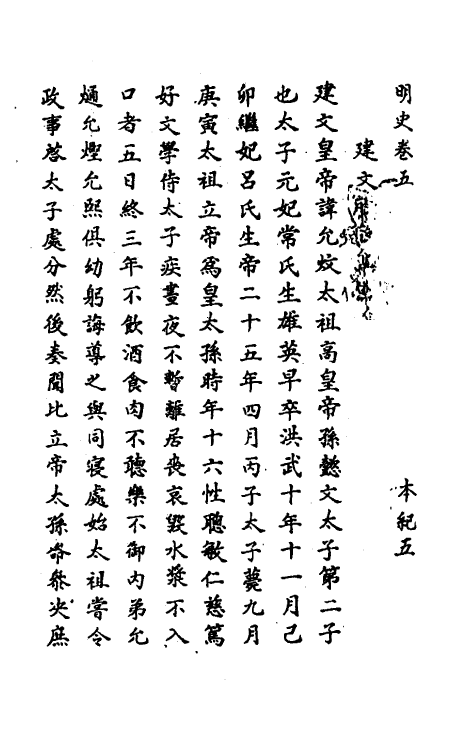 明史卷五 本紀五
建文
建文皇帝諱允炆太祖高皇帝孫懿文太子第二子
也太子元妃常氏生雄英早卒洪武十年十一月己
卯繼妃呂氏生帝二十五年四月丙子太子薨九月
庚寅太祖立帝為皇太孫時年十六性聰敏仁慈篤
好文學侍太子疾晝夜不暫離居喪哀毀水漿不入
口者五日終三年不飲酒食肉不聽樂不御內弟允
熥允熞允熙俱幼躬誨導之與同寢處始太祖嘗令
政事啓太子處分然後奏聞比立帝太孫命叅決庶